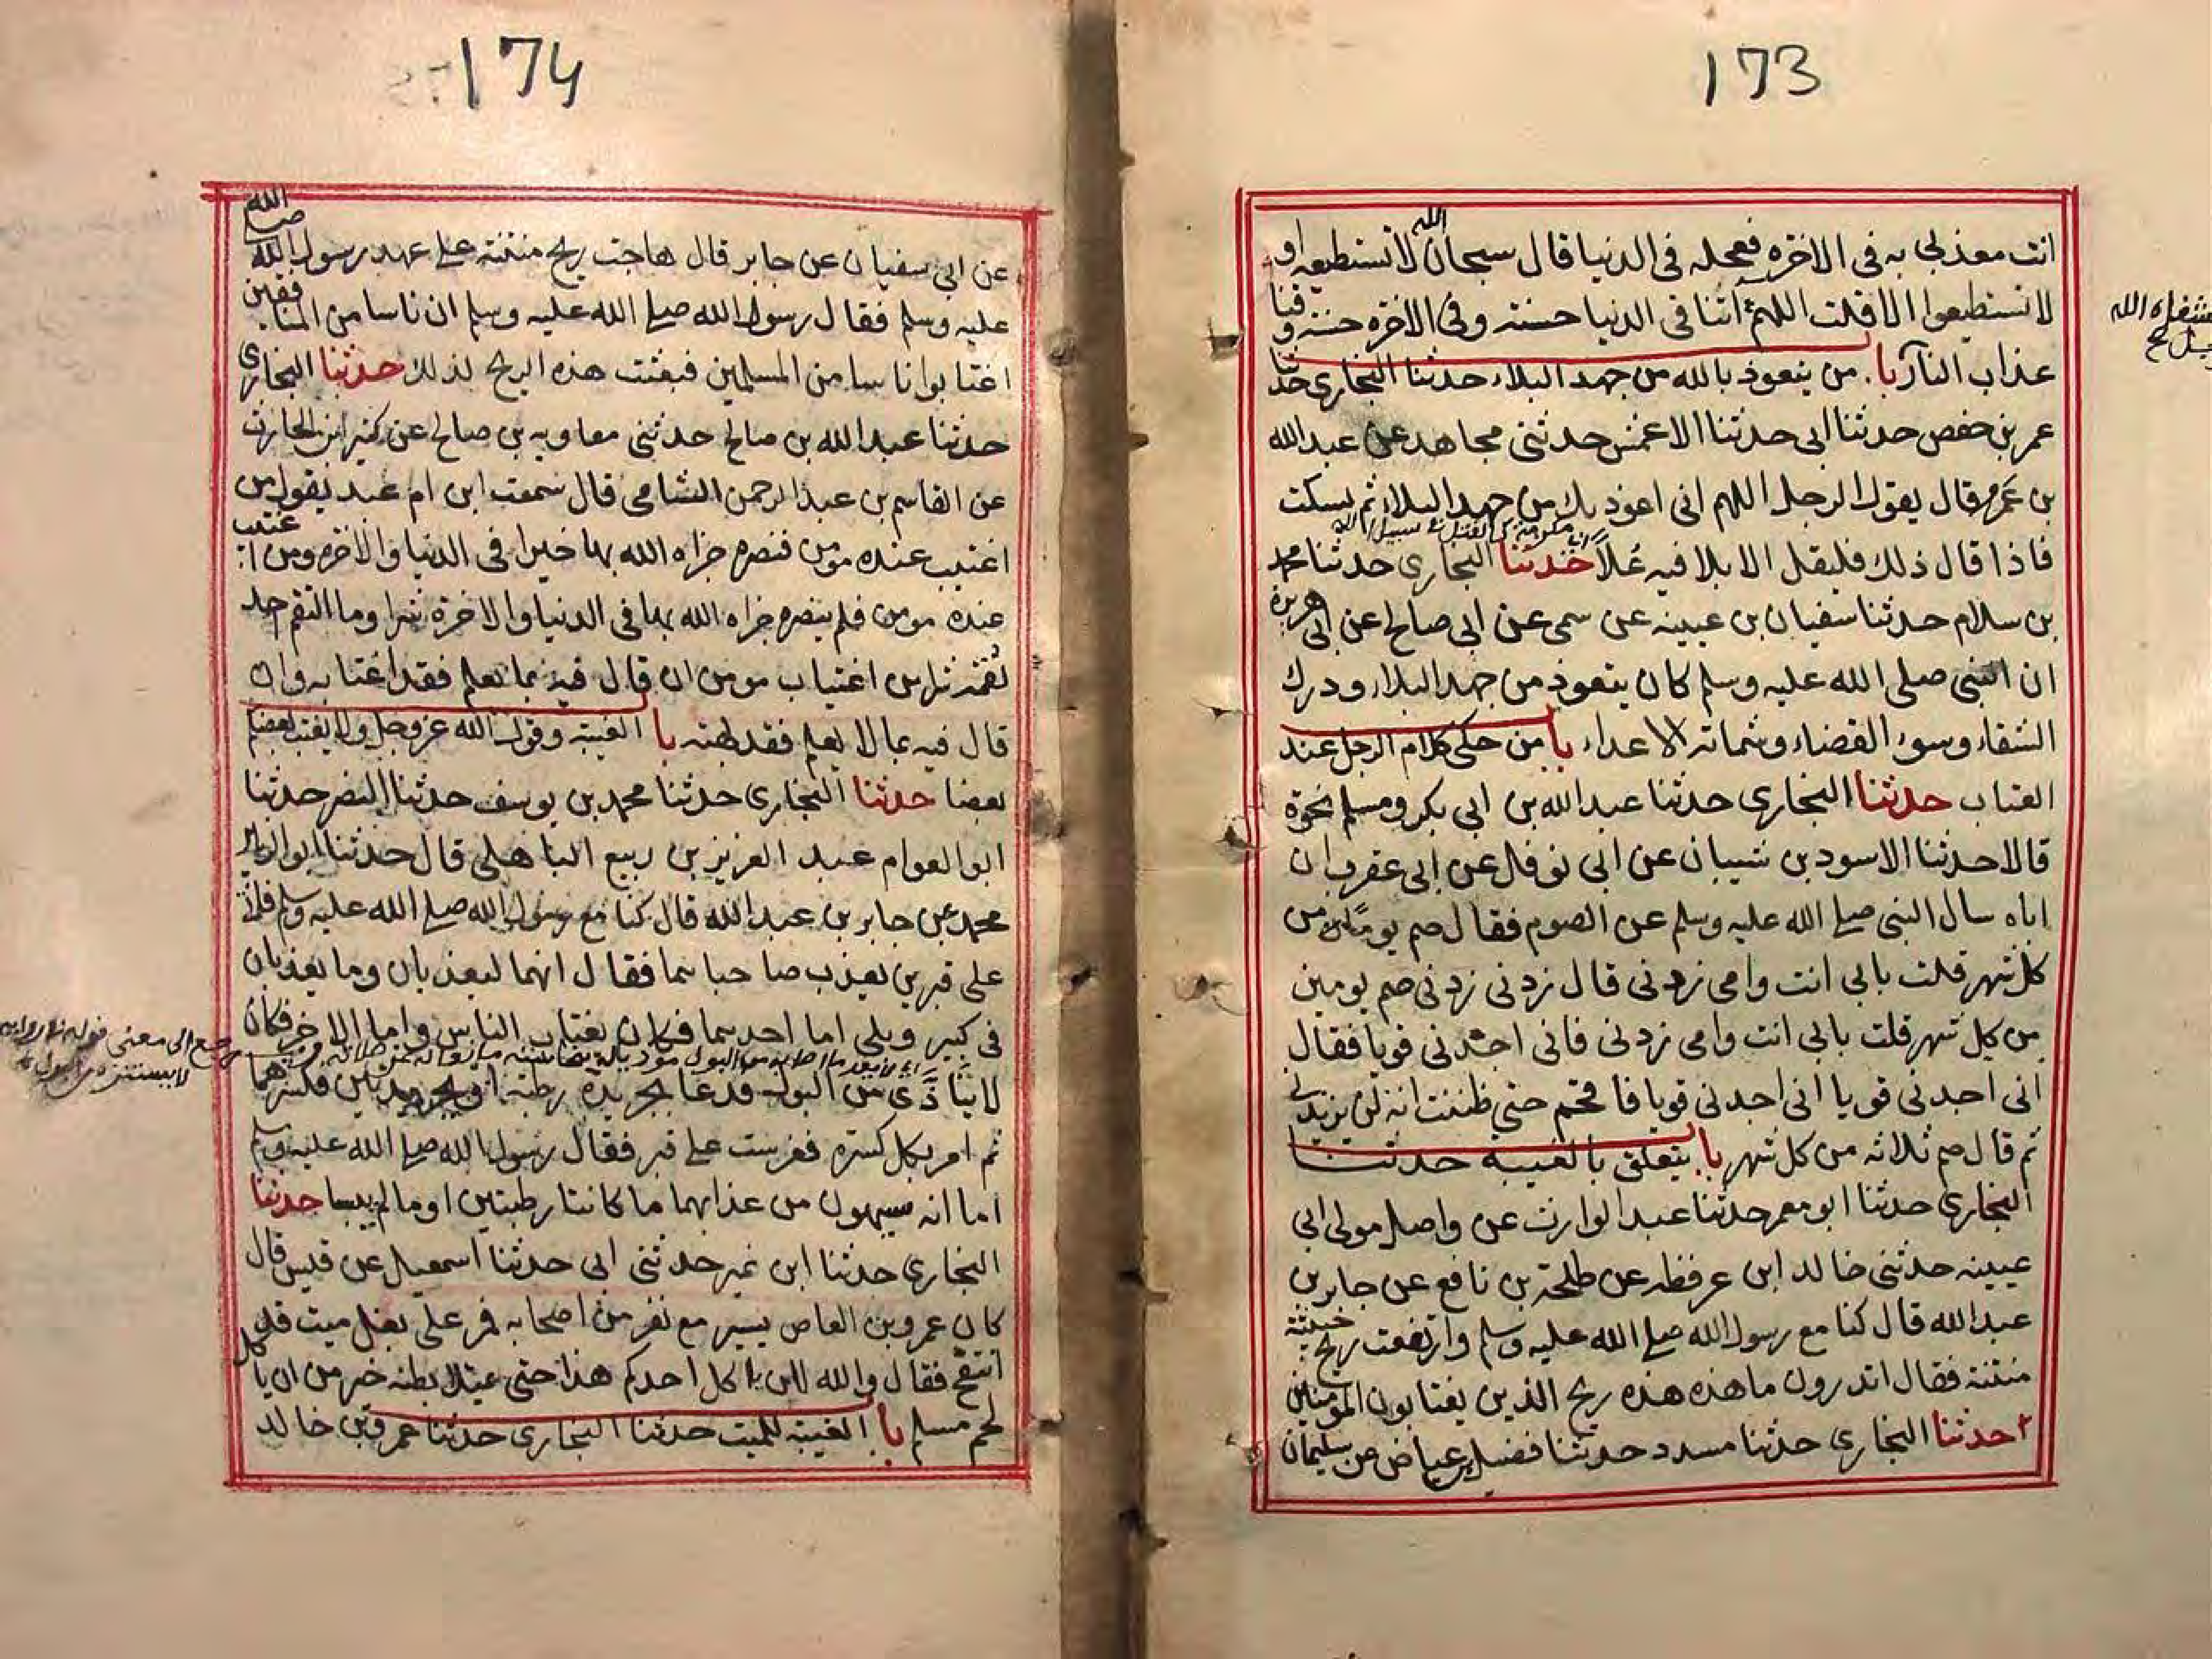 173
انت معذبي به في الاخرة فعجله في الدنيا قال سبحان الله لا تستطيعه او
لا تستطيعوا الا قلت اللهم آتنا في الدنيا حسنة وفي الاخرة حسنة وقنا
عذاب النار با من يتعوذ بالله من جهد البلاء حدثنا البخاري حدثنا
عمر بن حفص حدثنا ابي حدثنا الاعمش حدثني مجاهد عن عبد الله
بن عمرو قال يقول الرجل اللهم اني اعوذ بك من جهد البلاء ثم يسكت
فاذا قال ذلك فليقل الا بلا فيه علا حدثنا البخاري حدثنا محمد
بن سلام حدثنا سفيان بن عيينه عن سمي عن ابي صالح عن ابي هريرة
ان النبي صلى الله عليه وسلم كان يتعوذ من جهد البلاء ودرك
الشقاء وسوء القضاء وشماتة الاعداء با من حكى كلام الرجل عند
العتاب حدثنا البخاري حدثنا عبد الله بن ابي بكر ومسلم نحوه
قالا حدثنا الاسود بن شيبان عن ابي نوفل عن ابي عقرب ان
اباه سال النبي صلى الله عليه وسلم عن الصوم فقال صم يوما من
كل شهر قلت بابي انت وامي زدني قال زدني زدني صم يومين
من كل شهر قلت بابي انت وامي زدني فاني اجدني قويا فقال
اني اجدني قويا اني اجدني قويا فافحم حتى ظننت انه لن يزيدني
ثم قال صم ثلاثه من كل شهر با يتعلق بالغيبه حدثنا
البخاري حدثنا ابو معمر حدثنا عبد الوارث عن واصل مولى ابي
عيينه حدثني خالد ابن عرفطه عن طلحة بن نافع عن جابر بن
عبد الله قال كنا مع رسول الله صلى الله عليه وسلم وارتفعت ريح خبيثة
منتنة فقال اتدرون ما هذه هذه ريح الذين يغتابون المؤمنين
حدثنا البخاري حدثنا مسدد حدثنا فضيل بن عياض عن سليمان
174
عن ابي سفيان عن جابر قال هاجت ريح منتنة على عهد رسول الله صلى الله
عليه وسلم فقال رسول الله صلى الله عليه وسلم ان ناسا من المنافقين
اغتابوا ناسا من المسلمين فبعثت هذه الريح لذلك حدثنا البخاري
حدثنا عبد الله بن صالح حدثني معاويه بن صالح عن كثير ابن الحارث
عن القاسم بن عبد الرحمن الشامي قال سمعت ابن ام عبد يقول من
اغتيب عنده مومن فنصره جزاه الله بها خيرا في الدنيا والاخره ومن اغتيب
عنده مومن فلم ينصره جزاه الله بها في الدنيا والاخرة شرا وما التقم احد
لقمة شرا من اغتياب مومن ان قال فيه بما يعلم فقد اغتابه وان
قال فيه بما لا يعلم فقد بهته با الغيبة وقول الله عز وجل ولا يغتب بعضكم
بعضا حدثنا البخاري حدثنا محمد بن يوسف حدثنا النضر حدثنا
ابو العوام عبد العزيز بن ربيع الباهلي قال حدثنا ابو الزبير
محمد عن جابر بن عبد الله قال كنا مع رسول الله صلى الله عليه وسلم
على قبرين يعذب صاحباهما فقال انهما ليعذبان وما يعذبان
في كبير وبلى اما احدهما فكان يغتاب الناس واما الاخر فكان
لا يتأذى من البول فدعا بجريدة رطبة او بجريدتين فكسرهما
ثم امر بكل كسرة فغرست على قبر فقال رسول الله صلى الله عليه وسلم
اما انه سيهون من عذابهما ما كانتا رطبتين او ما لم ييبسا حدثنا
البخاري حدثنا ابن نمير حدثني ابي حدثنا اسمعيل عن قيس قال
كان عمرو بن العاص يسير مع نفر من اصحابه فمر على بغل ميت قد
انتفخ فقال والله لان ياكل احدكم هذا حتى يمتلا بطنه خير من ان ياكل
لحم مسلم با الغيبة للميت حدثنا البخاري حدثنا عمرو بن خالد